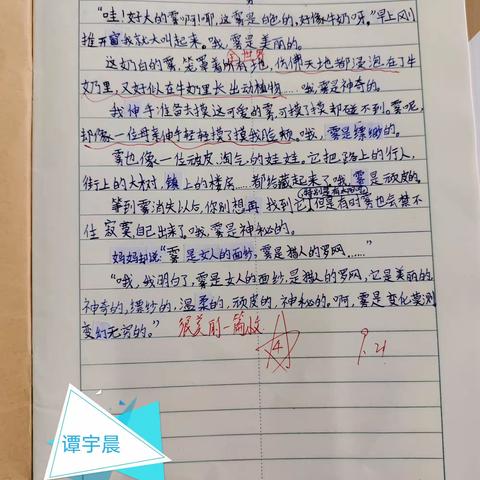 雾
“哇！好大的雾啊！耶，这雾是白色的，好像牛奶呀。”早上风川
推开窗我就大叫起来。哦，雾是美丽的。
世界
这奶白的雾，笼罩着所有地，仿佛天地都浸泡在了牛
奶里，又好似在牛奶里长出动植物……哦，雾是神奇的。
我伸手准备去摸这可爱的雾，可摸了摸都碰不到。雾呢，
却像一位母亲伸手轻轻摸了摸我脸颊。哦，雾是缥缈的。
雾也像一位顽皮、淘气的娃娃。它把路上的行人，
街上的大树，镇上的楼房……都给藏起来了哦，雾是顽皮的。
等到雾消失以后，你别想再找到它，但是有时雾也会禁不
住寂寞自己出来了。哦，雾是神秘的。
妈妈却说：“雾是女人的面纱，雾是猎人的罗网……”
“哦，我明白了，雾是女人的面纱，是猎人的罗网，它是美丽的，
神奇的，缥缈的，温柔的，顽皮的，神秘的。啊，雾是变化莫测
变幻无穷的。”
很美的一篇文
4
9.21
谭宇晨